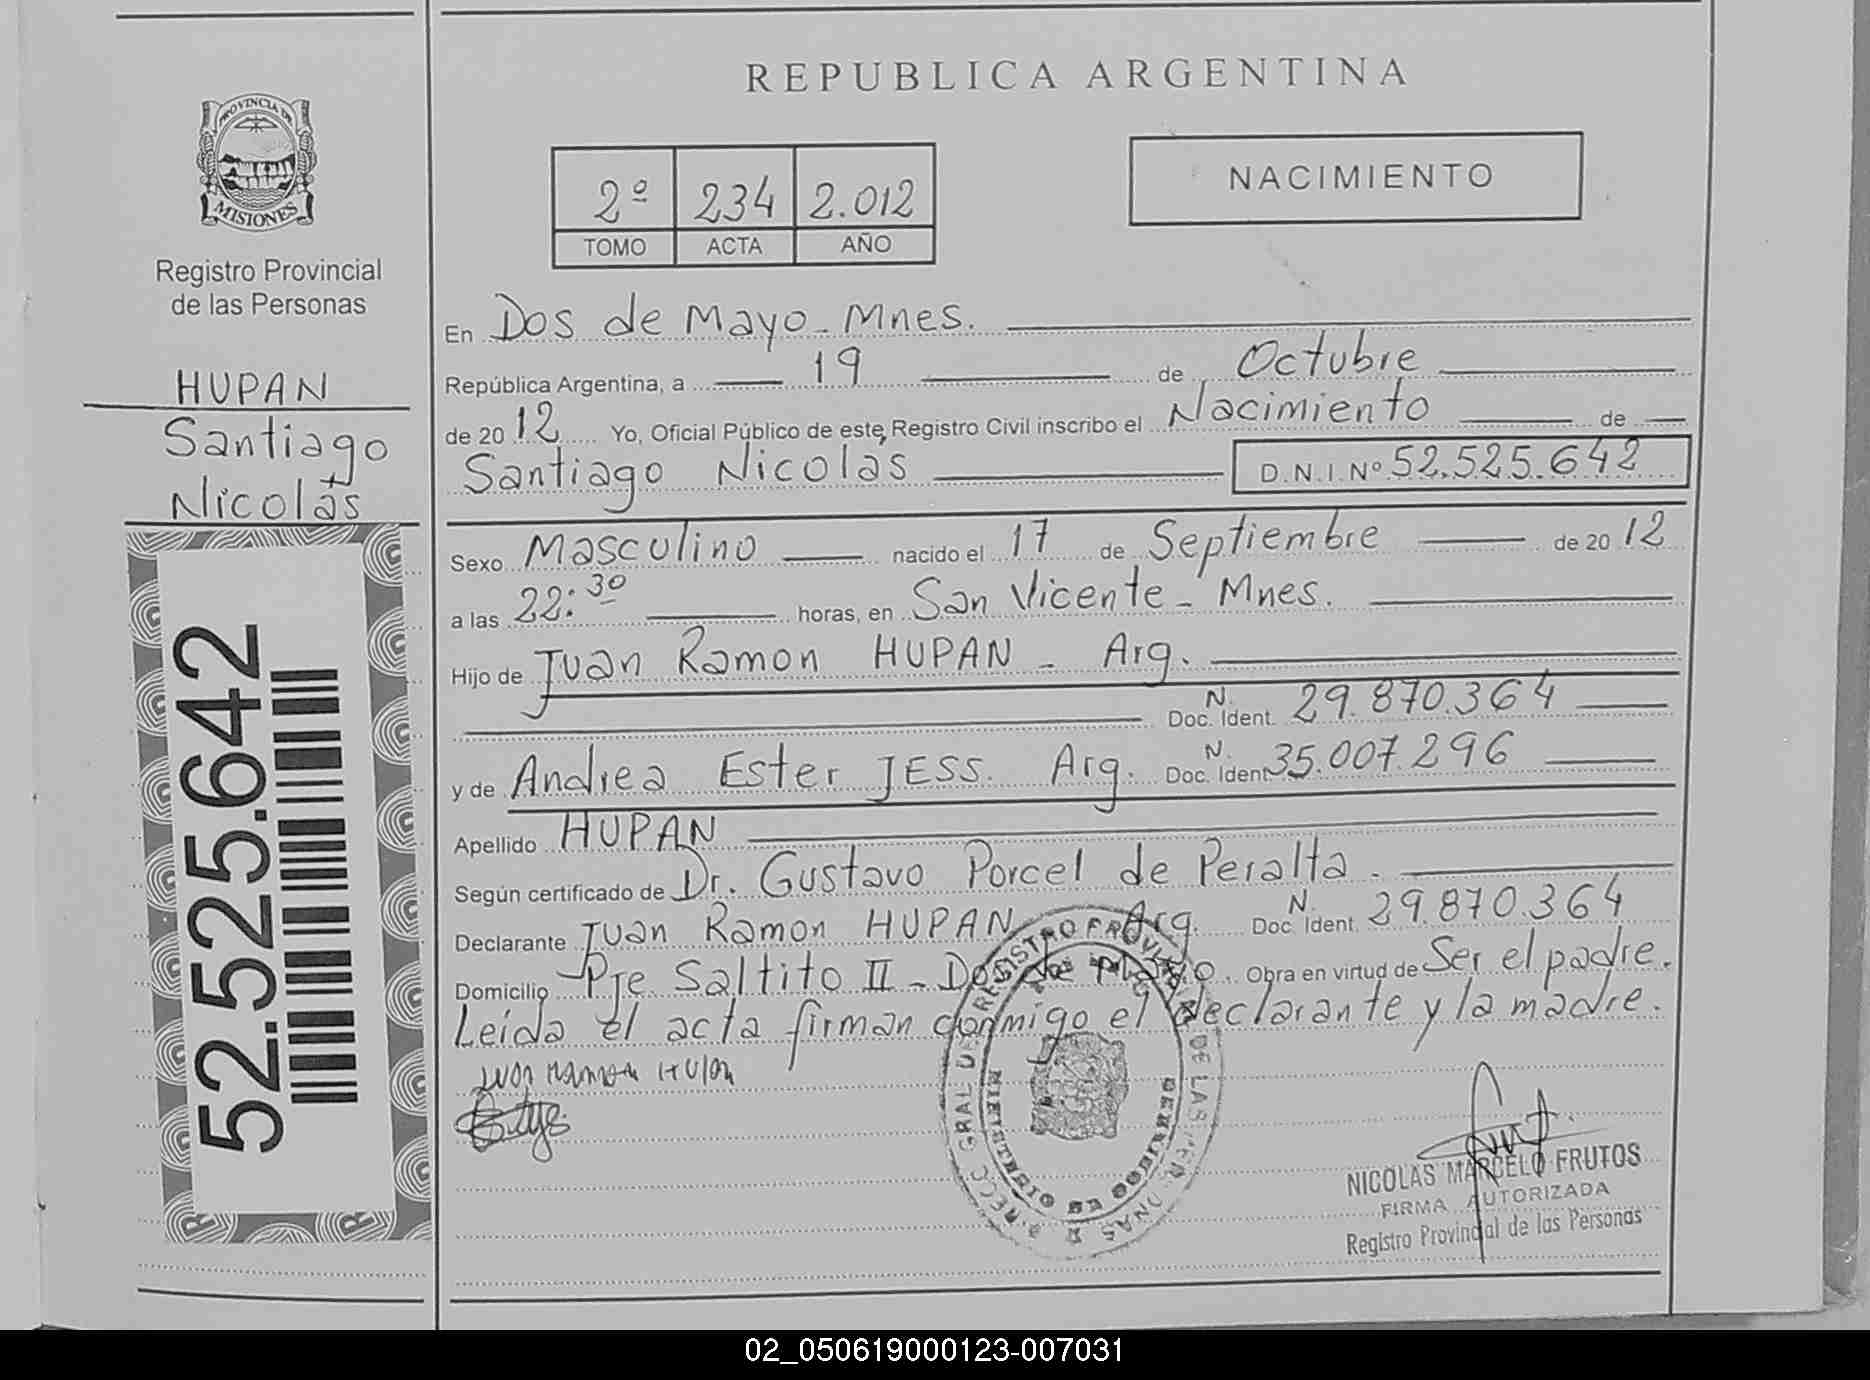 REPUBLICA ARGENTINA
PROVINCIA DE
MISIONES
Registro Provincial
de las Personas
HUPAN
Santiago
Nicolás
52.525.642
2º 234 2.012
TOMO ACTA AÑO
NACIMIENTO
En Dos de Mayo - Mnes.
República Argentina, a 19 de Octubre
de 2012 Yo, Oficial Público de este Registro Civil inscribo el Nacimiento de
Santiago Nicolas D.N.I. Nº 52.525.642
Sexo Masculino nacido el 17 de Septiembre de 2012
a las 22:30 horas, en San Vicente - Mnes.
Hijo de Juan Ramon HUPAN - Arg.
N. Doc. Ident. 29.870.364
y de Andrea Ester JESS. Arg. N. Doc. Ident 35.007.296
Apellido HUPAN
Según certificado de Dr. Gustavo Porcel de Peralta.
Declarante Juan Ramon HUPAN Arg. N. Doc. Ident. 29.870.364
Domicilio Pje. Saltito II - Dos de Mayo. Obra en virtud de Ser el padre.
Leída el acta firman conmigo el declarante y la madre.
Juan Ramon Hupan
MINISTERIO DE GOBIERNO
NICOLAS MARCELO FRUTOS
FIRMA AUTORIZADA
Registro Provincial de las Personas
02_050619000123-007031